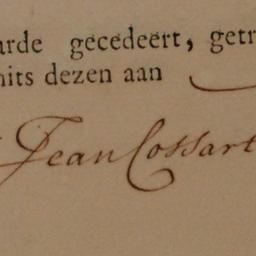 arde gecedeert, getr
nits dezen aan
Jean Cossart